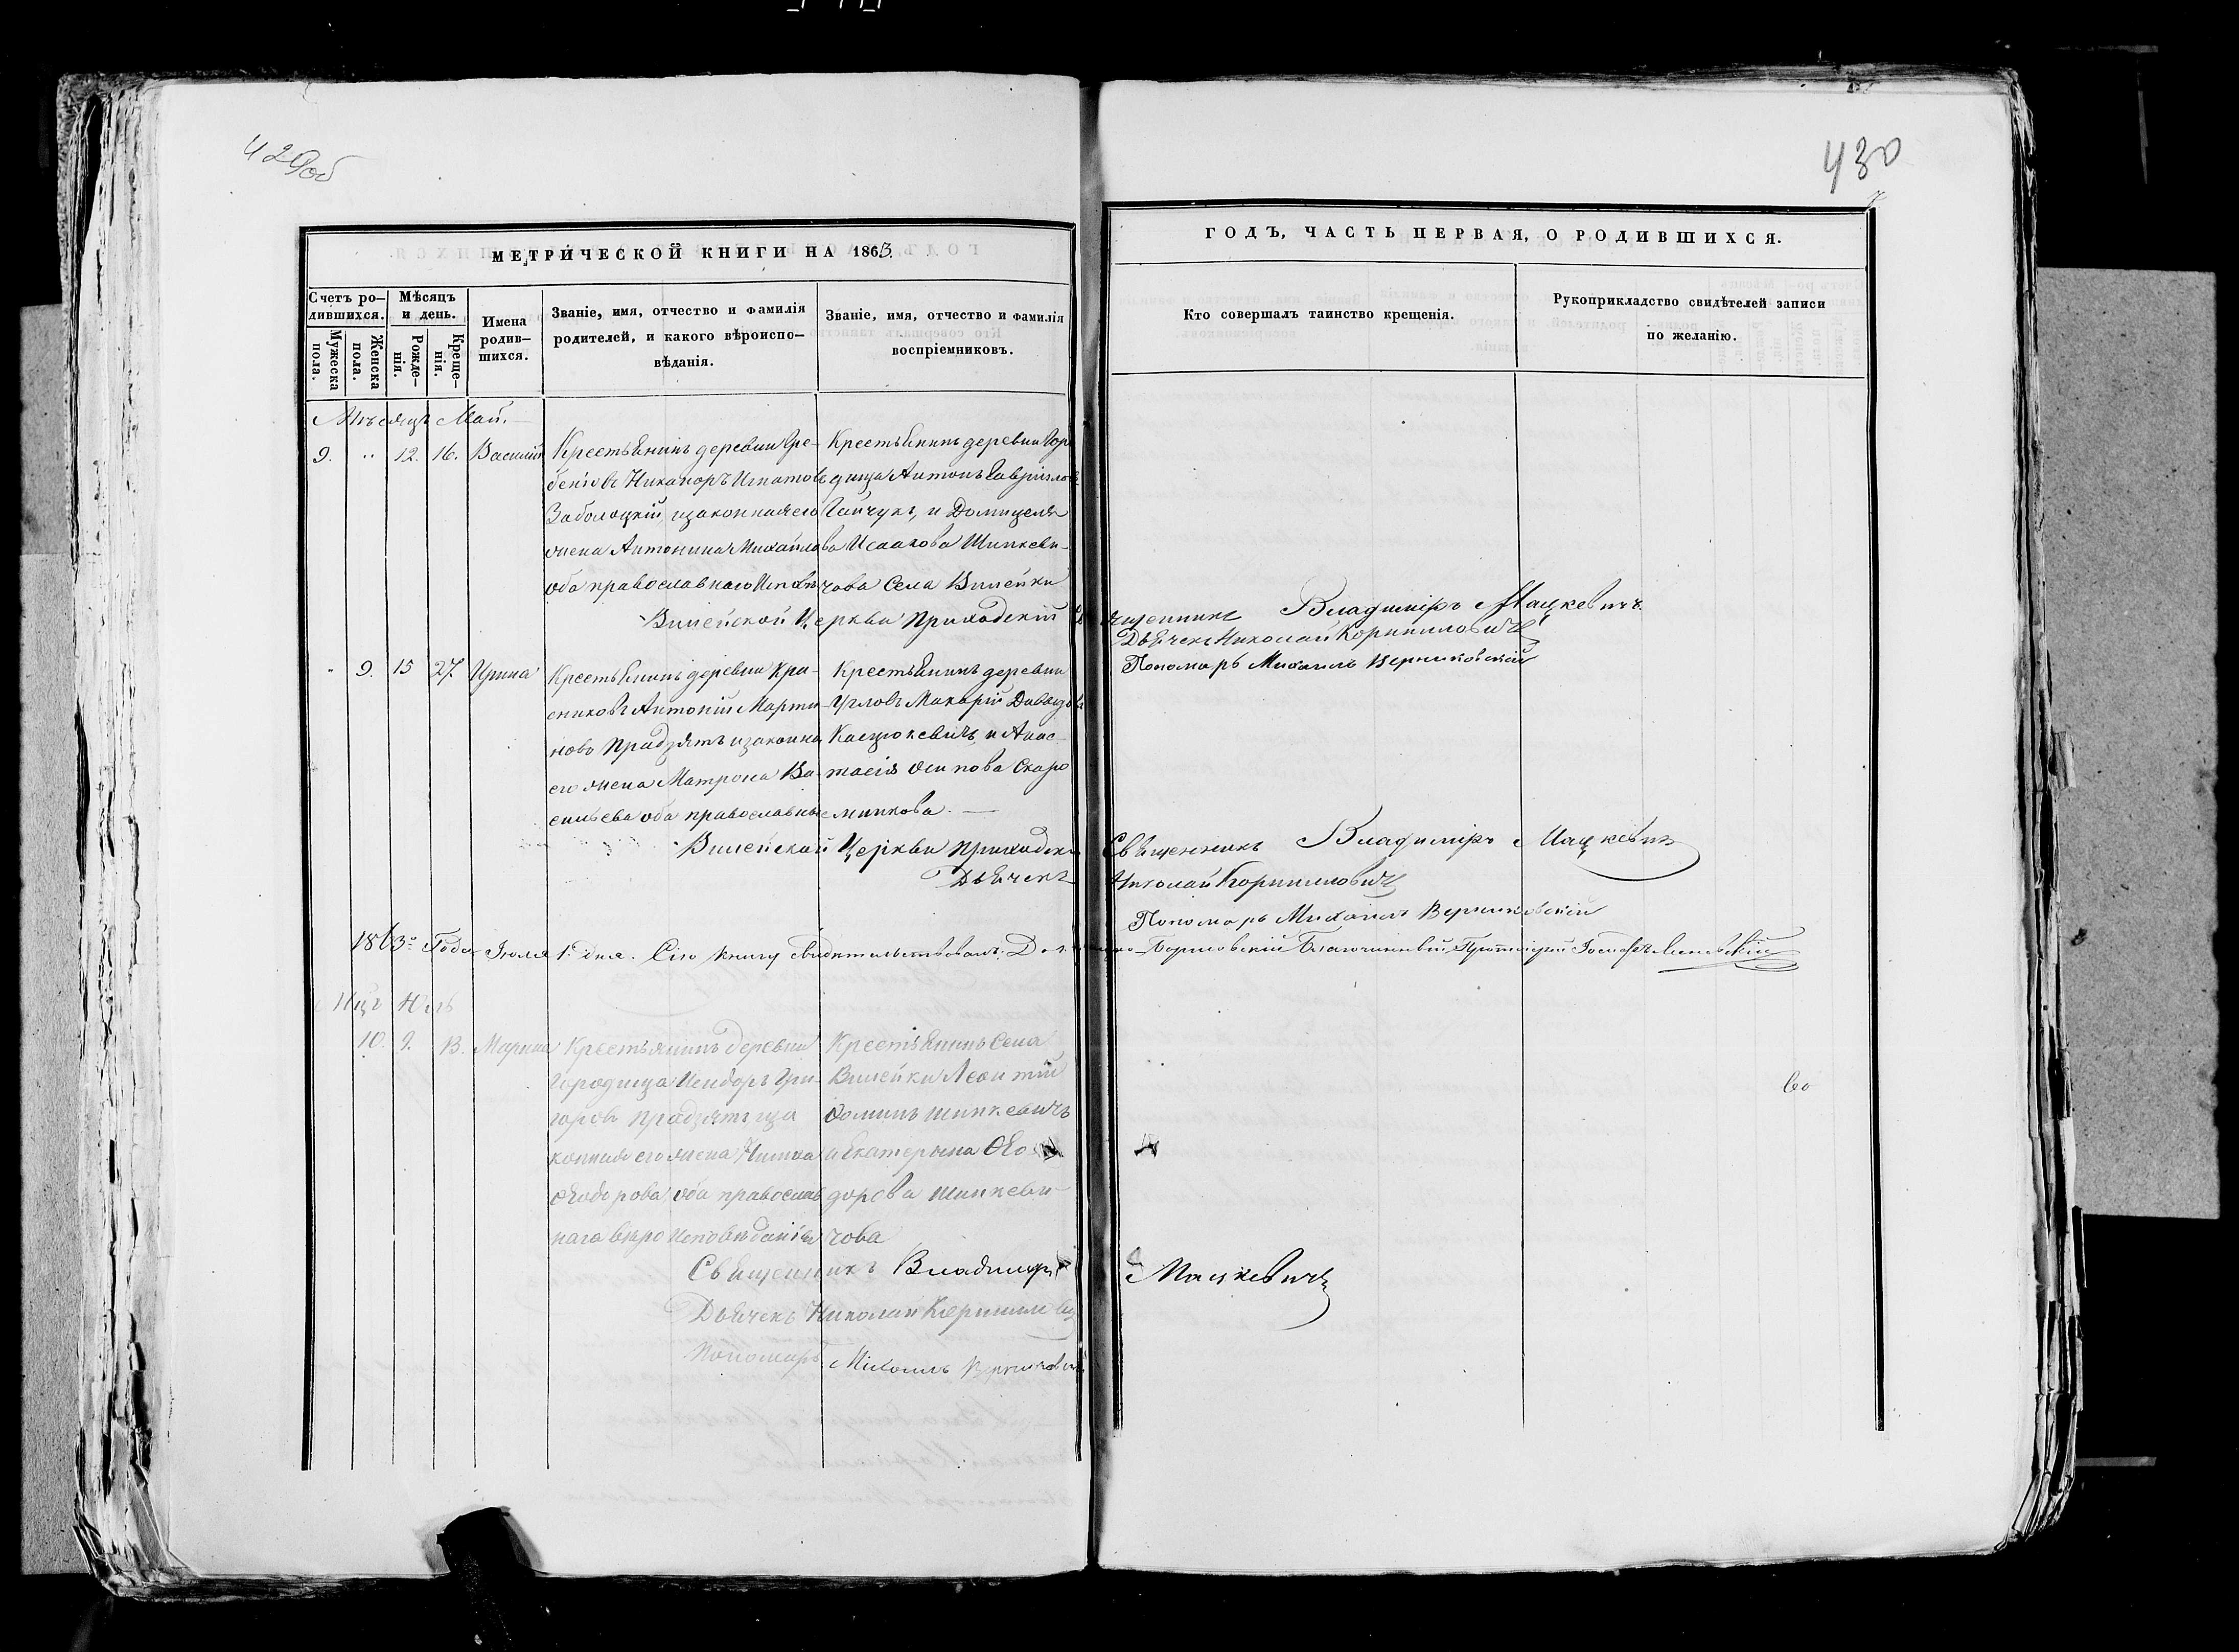 429об
430
МЕТРИЧЕСКОЙ КНИГИ НА 1863.
ГОДЪ, ЧАСТЬ ПЕРВАЯ, О РОДИВШИХСЯ.
Счетъ ро-
дившихся.
Мужеска
пола.
Женска
пола.
Мѣсяцъ
и день.
Рожде-
нія.
Креще-
нія.
Имена
родив-
шихся.
Званіе, имя, отчество и фамилія
родителей, и какого вѣроиспо-
вѣданія.
Званіе, имя, отчество и фамилія
воспріемниковъ.
Кто совершалъ таинство крещенія.
Рукоприкладство свидѣтелей записи
по желанію.
Мѣсяцъ Май.
9. " 12. 16. Василій
Крестьянинъ деревни Гре-
Никаноръ Игнатовъ
Заболоцкій, и законная его
жена Антонина Михайлова
оба православнаго
Крестьянинъ деревни Горо
дища Антонъ
и Домицеля
Исаакова Шипкеви-
чова Села Вилейки
Вилейской Церкви Приходскій Священникъ Владиміръ Мацкевичъ.
Дьячекъ Николай Корниловичъ
Пономарь Михаилъ Верниковскій
" 9. 15 27. Ирина
Крестьянинъ деревни Кра-
сниковъ Антоній Марти-
новъ Прадзятъ и законна
его жена Матрона Ва-
сильева оба православные
Крестьянинъ деревни
Угловъ Макарій Давыдовъ
Касцюкевичъ, и Анас-
тасія Осипова Скаро
мникова.
Вилейской Церкви Приходскій Священникъ Владиміръ Мацкевичъ
Дьячекъ Николай Корниловичъ
Пономарь Михаилъ Верниковскій
1863го Года Іюля 1го дня. Сію книгу свидѣтельствовалъ Борисовскій Благочинный Протоіерей
Мцъ Юль
10. 9. Марина
Крестьянинъ деревни
Городища Исидоръ Гри-
горовъ Прадзятъ и за
конная его жена
Ѳеодорова оба православ
наго вѣроисповѣданія
Крестьянинъ Села
Вилейки Леонтій
Ѳоминъ Шипкевичъ
и Екатерына Ѳео
дорова Шипкеви-
чова
Священникъ Владиміръ Мацкевичъ
Дьячекъ Николай Корниловичъ
Пономарь Михаилъ Верниковскій